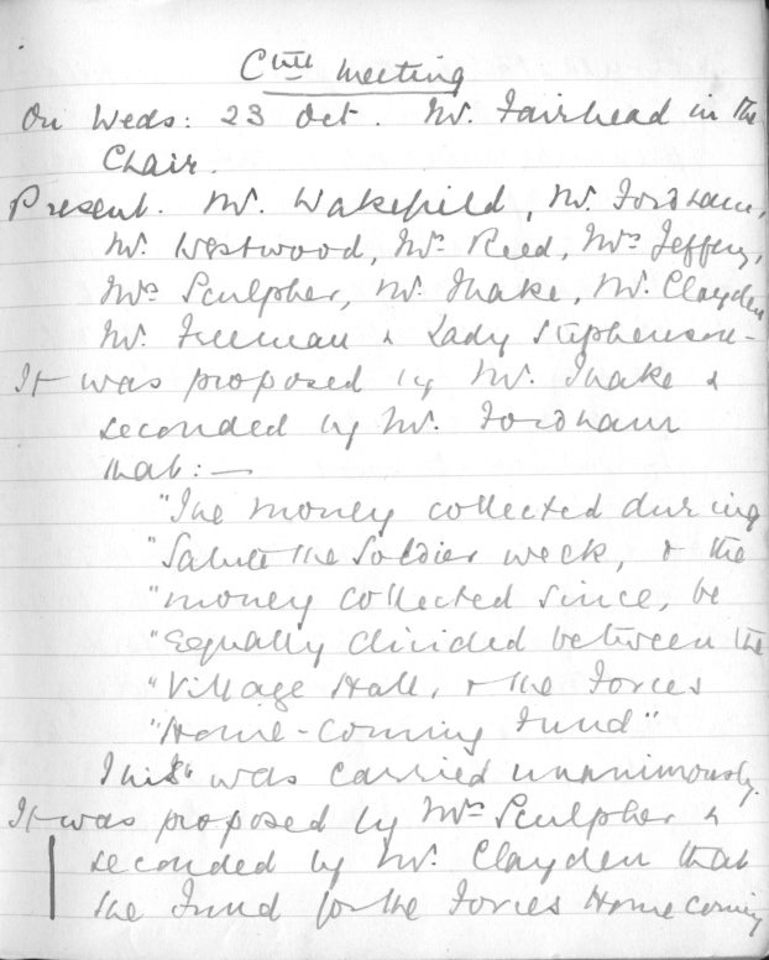 Cttee Meeting
On Weds: 23 Oct. Mr. Fairhead in the
Chair.
Present. Mr. Wakefield, Mr. Fordham,
Mr. Westwood, Mrs Reed, Mrs Jeffery,
Mrs Sculpher, Mr. Thake, Mr. Clayden
Mr. Freeman & Lady Stephenson-
It was proposed by Mr. Thake &
seconded by Mr. Fordham
that:—
"The money collected during
"Salute the Soldier week, & the
"money collected since, be
"Equally divided between the
"Village Hall, & the Forces
"Home-coming Fund"
This was carried unanimously.
It was proposed by Mrs Sculpher &
seconded by Mr. Clayden that
the Fund for the Forces Homecoming